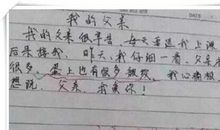 我的父亲
我的父亲很辛苦,每天要送我上学
后来接我,昨天,我仔细一看,父亲
很多,脸上也有很多皱纹,我心痛极
想说,父亲,我爱你!